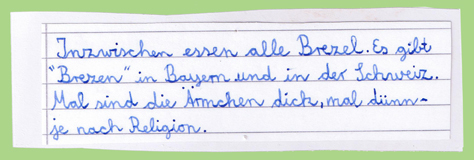 Inzwischen essen alle Brezel. Es gibt
"Brezen" in Bayern und in der Schweiz.
Mal sind die Ärmchen dick, mal dünn-
je nach Religion.